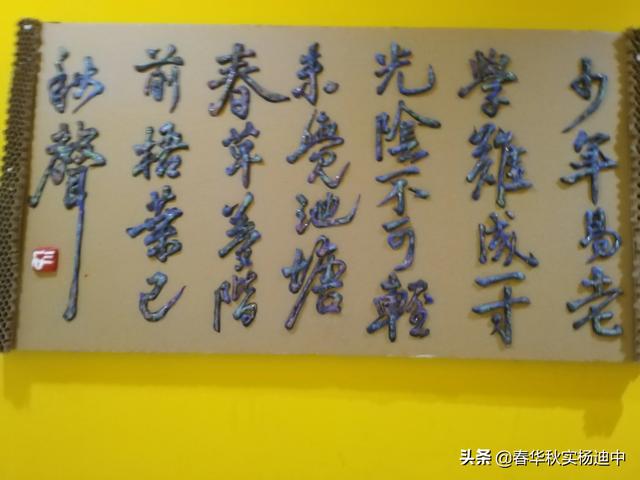 少年易老
學難成一寸
光陰不可輕
未覺池塘
春草夢階
前梧葉已
秋聲
头条 @春华秋实杨迪中